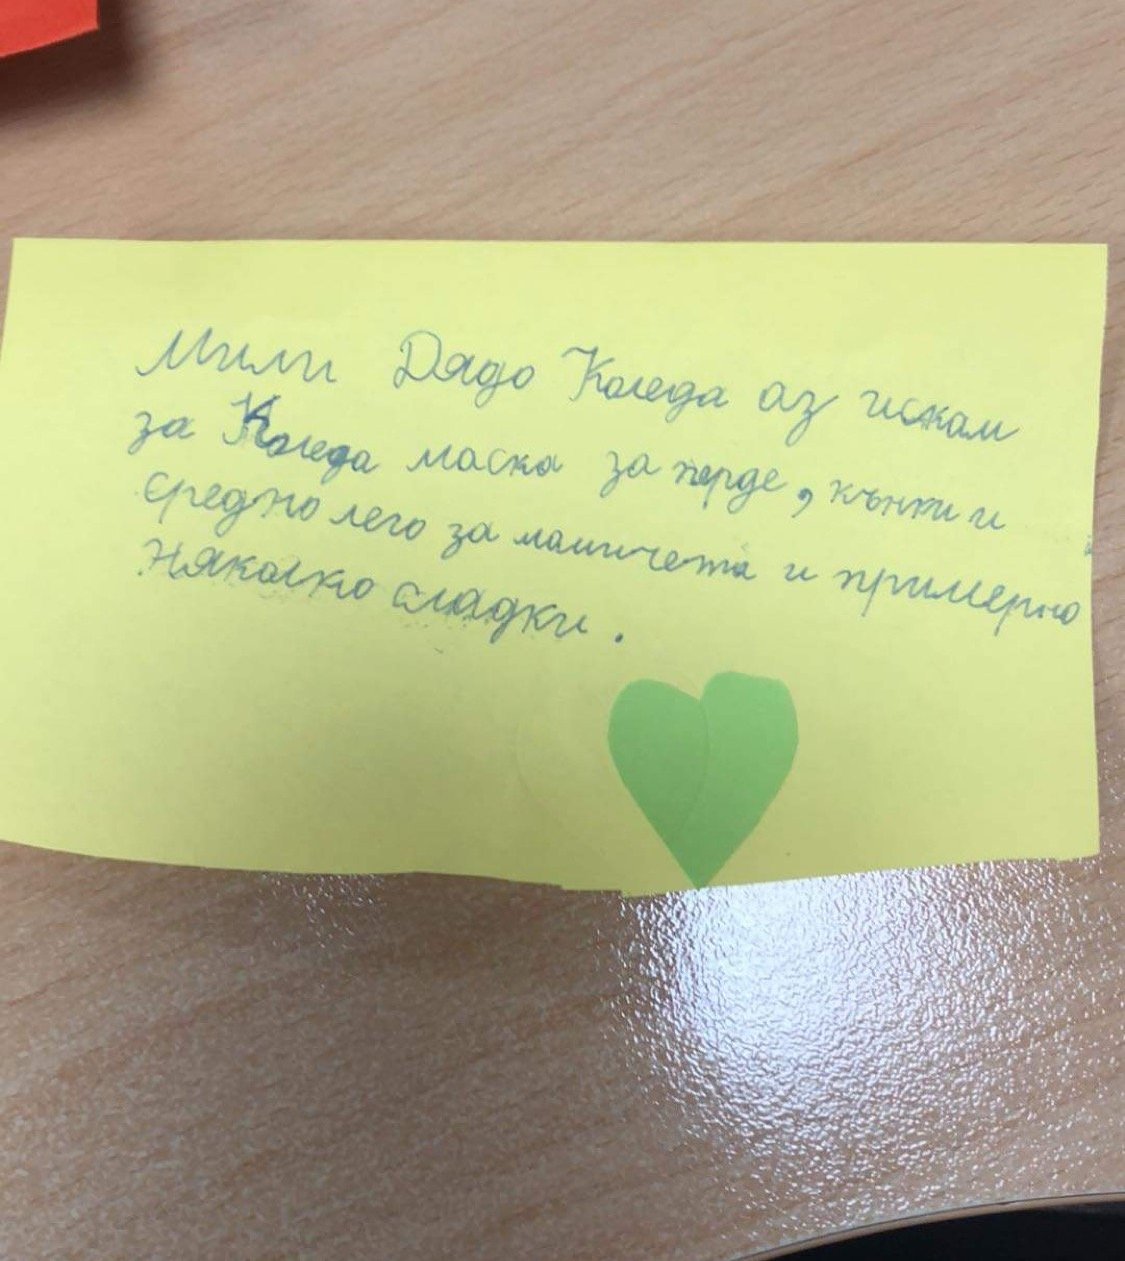 Мили Дядо Коледа аз искам
за Коледа маска за перде, кънки и
средно лего за момичета и примерно
няколко сладки.